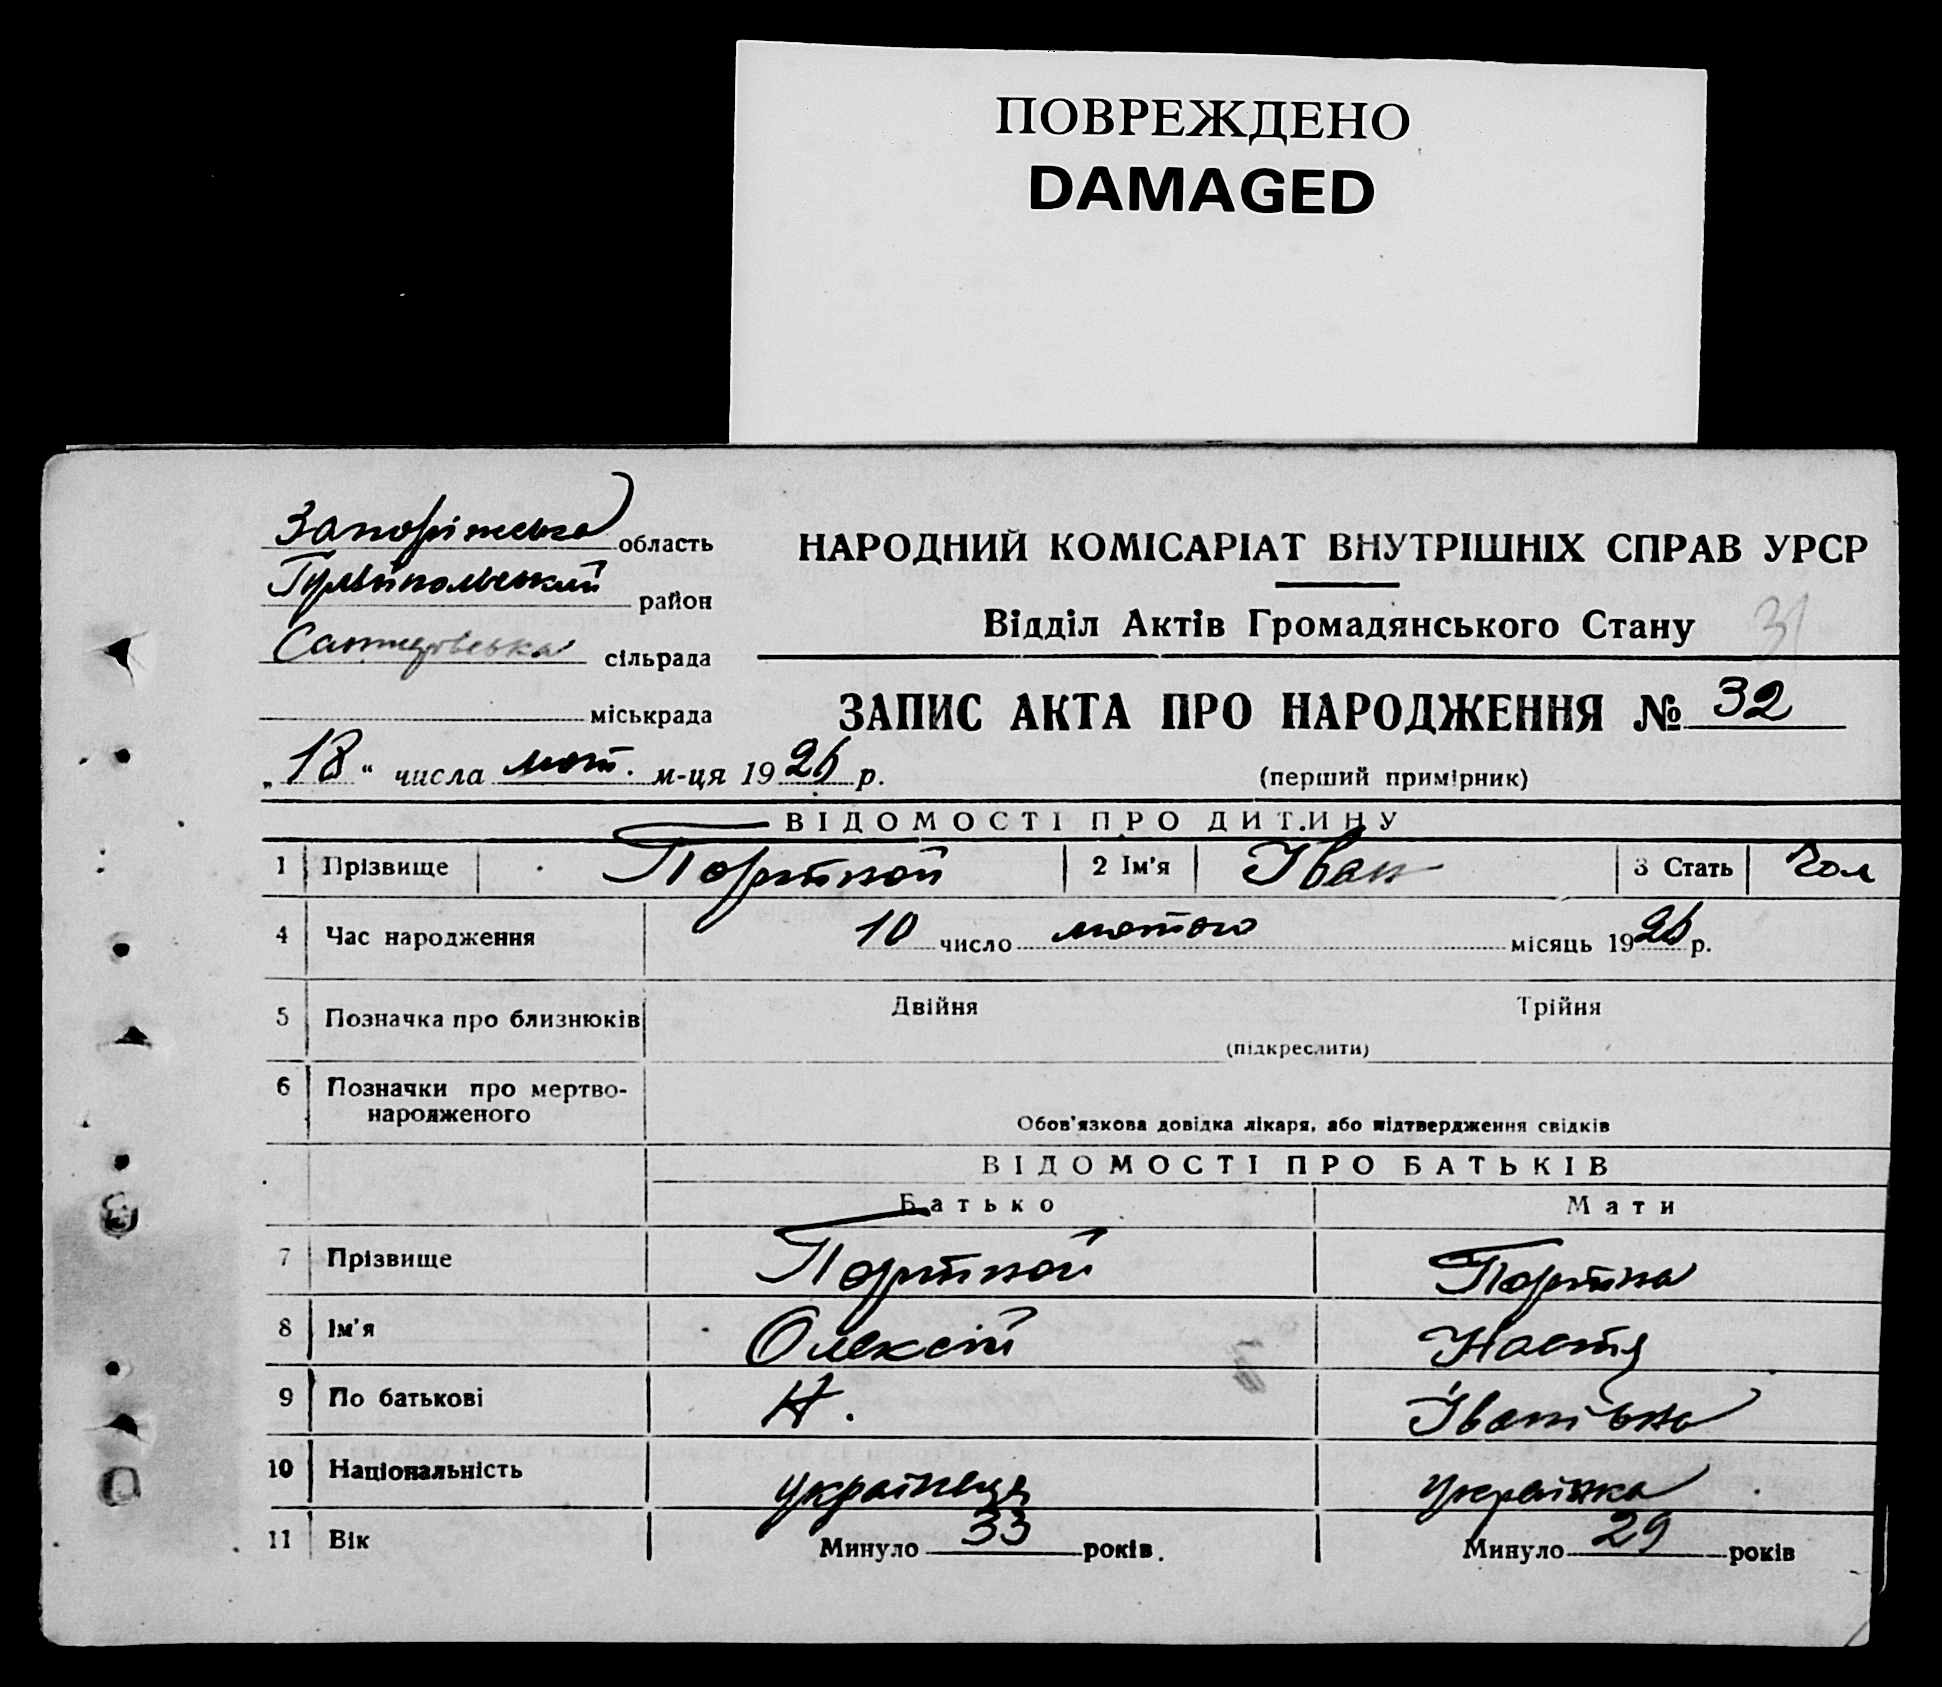 ПОВРЕЖДЕНО
DAMAGED
Запоріжська область
Гуляйпольський район
НАРОДНИЙ КОМІСАРІАТ ВНУТРІШНІХ СПРАВ УРСР
Відділ Актів Громадянського Стану 31
сільрада
міськрада
ЗАПИС АКТА ПРО НАРОДЖЕННЯ № 32
„18“ числа лют. м-ця 1926 р.
(перший примірник)
ВІДОМОСТІ ПРО ДИТИНУ
1 Прізвище Портной 2 Ім'я Іван 3 Стать Чол
4 Час народження 10 число лютого місяць 1926 р.
5 Позначка про близнюків Двійня Трійня
(підкреслити)
6 Позначки про мертво-
народженого
Обов'язкова довідка лікаря, або підтвердження свідків
ВІДОМОСТІ ПРО БАТЬКІВ
Батько Мати
7 Прізвище Портной Портна
8 Ім'я Олексій Настя
9 По батькові Н. Іванівна
10 Національність українець українка
11 Вік Минуло 33 років. Минуло 29 років